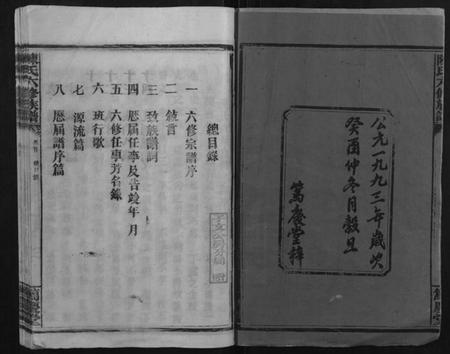 公元一九九三年歲次
癸酉仲冬月穀旦
篤慶堂梓
總目錄
一 六修宗譜序
二 敘言
三 致族譜詞
四 歷屆任事及告竣年月
五 六修任事芳名錄
六 班行歌
七 源流篇
八 歷屆譜序篇
陳氏六修族譜